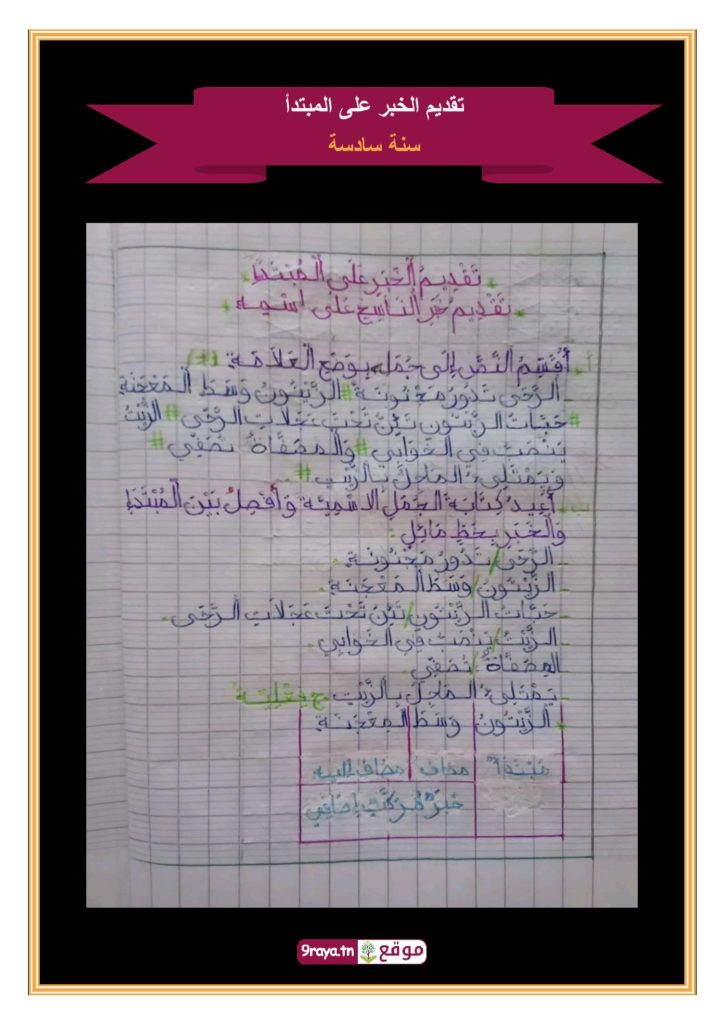 تقديم الخبر على المبتدأ
سنة سادسة
* تَقْدِيمُ الْخَبَرِ عَلَى الْمُبْتَدَإِ *
* تَقْدِيمُ خَبَرِ النَّاسِخِ عَلَى اسْمِهِ *
أ - أُقَسِّمُ النَّصَّ إِلَى جُمَلٍ بِوَضْعِ الْعَلَامَةِ (#)
- الرَّحَى تَدُورُ مَجْنُونَةً # الزَّيْتُونُ وَسَطَ الْمَعْجَنَةِ
# حَبَّاتُ الزَّيْتُونِ تَئِنُّ تَحْتَ عَجَلَاتِ الرَّحَى # الزَّيْتُ
يَنْصَبُّ فِي الْخَوَابِي # وَالْمِصْفَاةُ تُصَفِّي #
وَيَمْتَلِئُ الْمَاجِلُ بِالزَّيْتِ #
ب - أُعِيدُ كِتَابَةَ الْجُمَلِ الْاِسْمِيَّةِ وَأَفْصِلُ بَيْنَ الْمُبْتَدَإِ
وَالْخَبَرِ بِخَطٍّ مَائِلٍ :
- الرَّحَى / تَدُورُ مَجْنُونَةً.
- الزَّيْتُونُ / وَسَطَ الْمَعْجَنَةِ.
- حَبَّاتُ الزَّيْتُونِ / تَئِنُّ تَحْتَ عَجَلَاتِ الرَّحَى.
- الزَّيْتُ / يَنْصَبُّ فِي الْخَوَابِي.
- الْمِصْفَاةُ / تُصَفِّي.
- يَمْتَلِئُ الْمَاجِلُ بِالزَّيْتِ. ج فِعْلِيَّة
* الزَّيْتُونُ وَسَطَ الْمَعْجَنَةِ
مُبْتَدَأ مضاف مضاف إليه
خَبَرٌ مُرَكَّبٌ إِضَافِيٌّ
موقع 9raya.tn